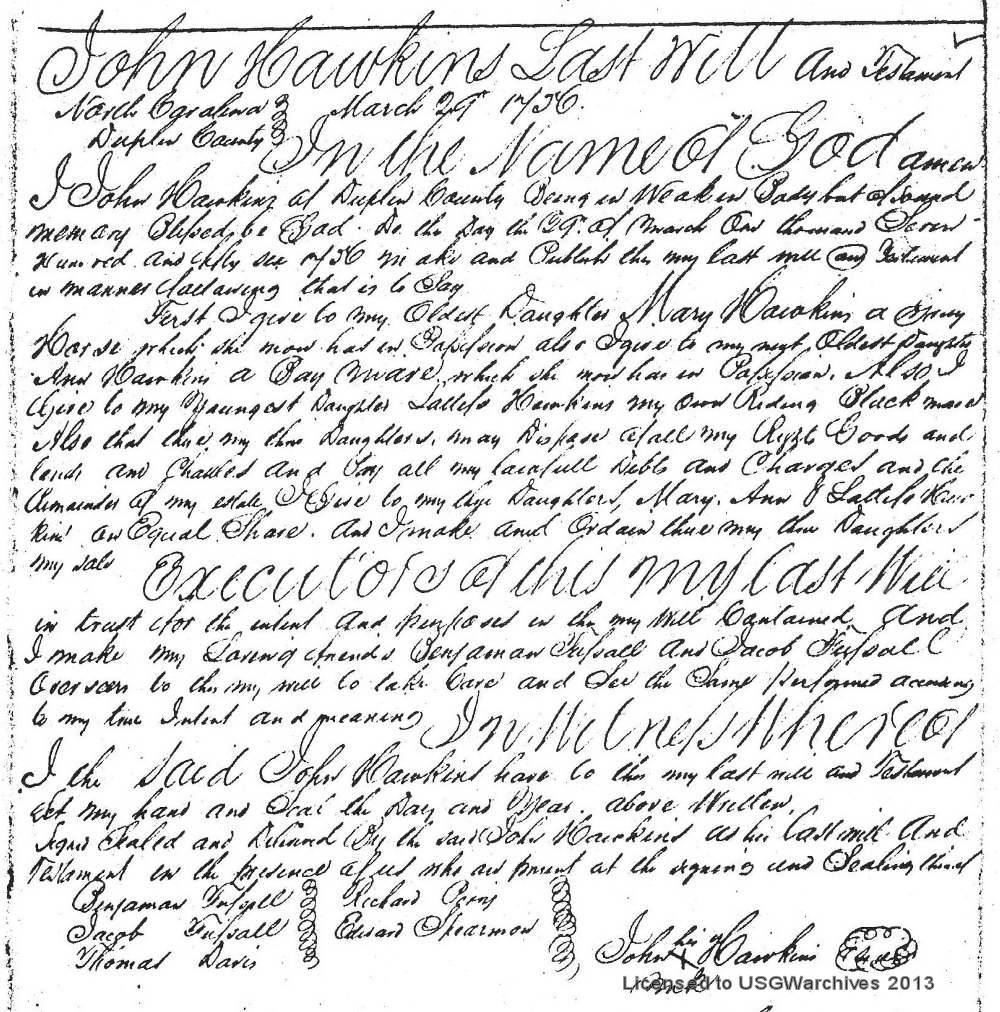 John Hawkins Last Will and Testament
North Carolina March 29th 1756.
Duplin County
In the Name of God amen
I John Hawkins of Duplin County Being in Weak in Body but of Sound
memory Blessed be God. Do the Day the 29th of March One thousand Seven
Hundred and fifty six 1756 make and Publish this my last will and Testament
in manner following that is to Say
First I give to my Oldest Daughter Mary Hawkins a Horse
Horse which she now has in Possession also I give to my next Oldest Daughter
Ann Hawkins a Bay mare which she now has in Possession. Also I
Give to my Youngest Daughter Lattess Hawkins my own Riding Black mare
Also that these my three Daughters may Dispose of all my Right Goods and
lands and Chattles and Pay all my lawfull Debts and Charges and the
Remainder of my estate I Give to my three Daughters, Mary. Ann & Lattess Haw
kins an Equal Share. and I make and Ordain these my three Daughters
my sole Executors of this my last Will
in trust for the intent and purposes in this my Will Contained and
I make my Loving friends Benjaman Fussall and Jacob Fussall
Overseers to this my will to take Care and See the Same performed according
to my true Intent and meaning In Witness Whereof
I the Said John Hawkins have to this my last will and Testament
set my hand and Seal the Day and Year above Written.
Signed Sealed and Delivered By the said John Hawkins as his last will And
Testament in the presence of us who are present at the signing and Sealing thereof
Benjaman Fussell Richard
Jacob Fussall Edward Shearmon
Thomas Davis John his X mark Hawkins Seal
Licensed to USGWarchives 2013